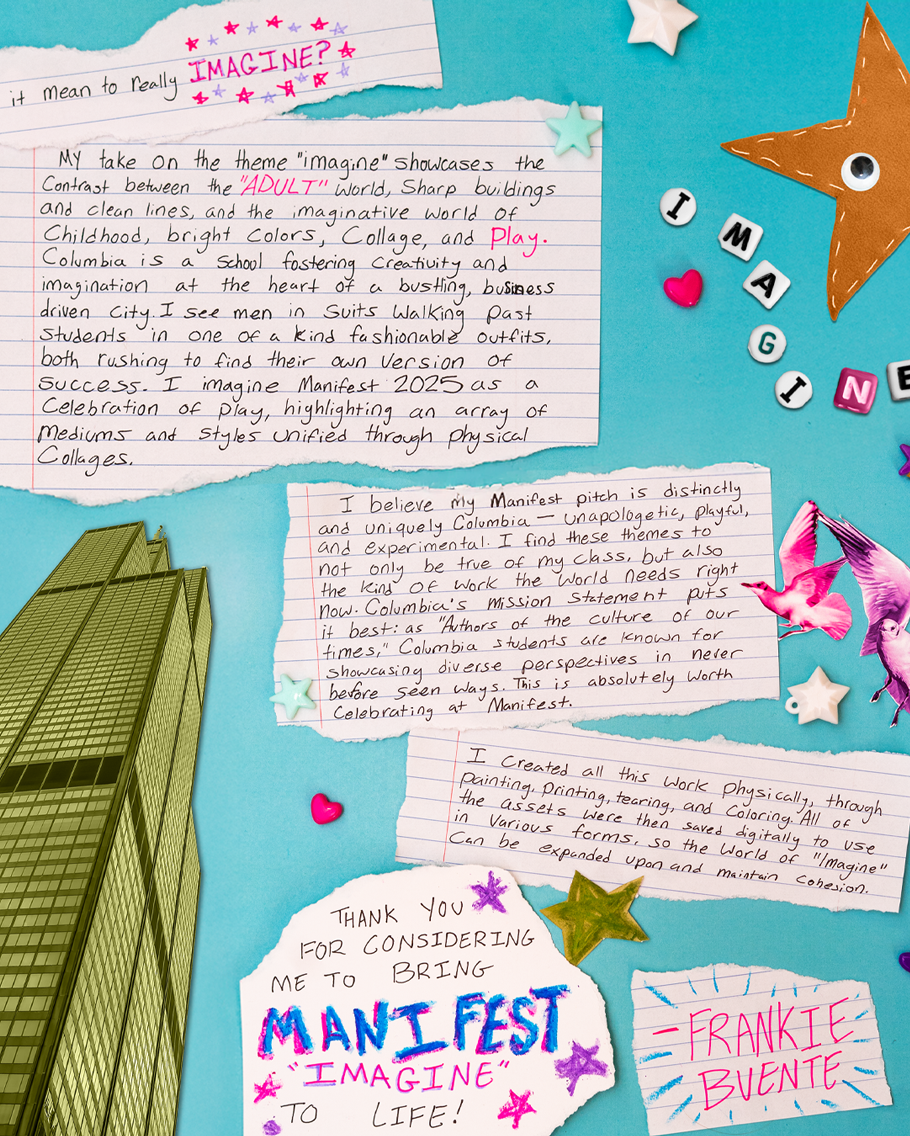 it mean to really IMAGINE?
My take on the theme "imagine" showcases the
Contrast between the "ADULT" World, Sharp buildings
and clean lines, and the imaginative world of
Childhood, bright Colors, Collage, and Play.
Columbia is a School fostering Creativity and
imagination at the heart of a bustling, business
driven city. I see men in Suits Walking past
Students in one of a kind fashionable outfits,
both rushing to find their own version of
Success. I imagine Manifest 2025 as a
Celebration of play, highlighting an array of
Mediums and styles unified through physical
Collages.
I
M
A
G
I
N
E
I believe my Manifest pitch is distinctly
and uniquely Columbia — unapologetic, playful,
and experimental. I find these themes to
not only be true of my class, but also
the kind of work the world needs right
now. Columbia's mission statement puts
it best: as "Authors of the culture of our
times," Columbia students are known for
showcasing diverse perspectives in never
before seen ways. This is absolutely worth
Celebrating at Manifest.
I Created all this work physically, through
painting, printing, tearing, and Coloring. All of
the assets were then saved digitally to use
in various forms, so the world of "Imagine"
Can be expanded upon and maintain Cohesion.
THANK YOU
FOR CONSIDERING
ME TO BRING
MANIFEST
"IMAGINE"
TO LIFE!
- FRANKIE
BUENTE